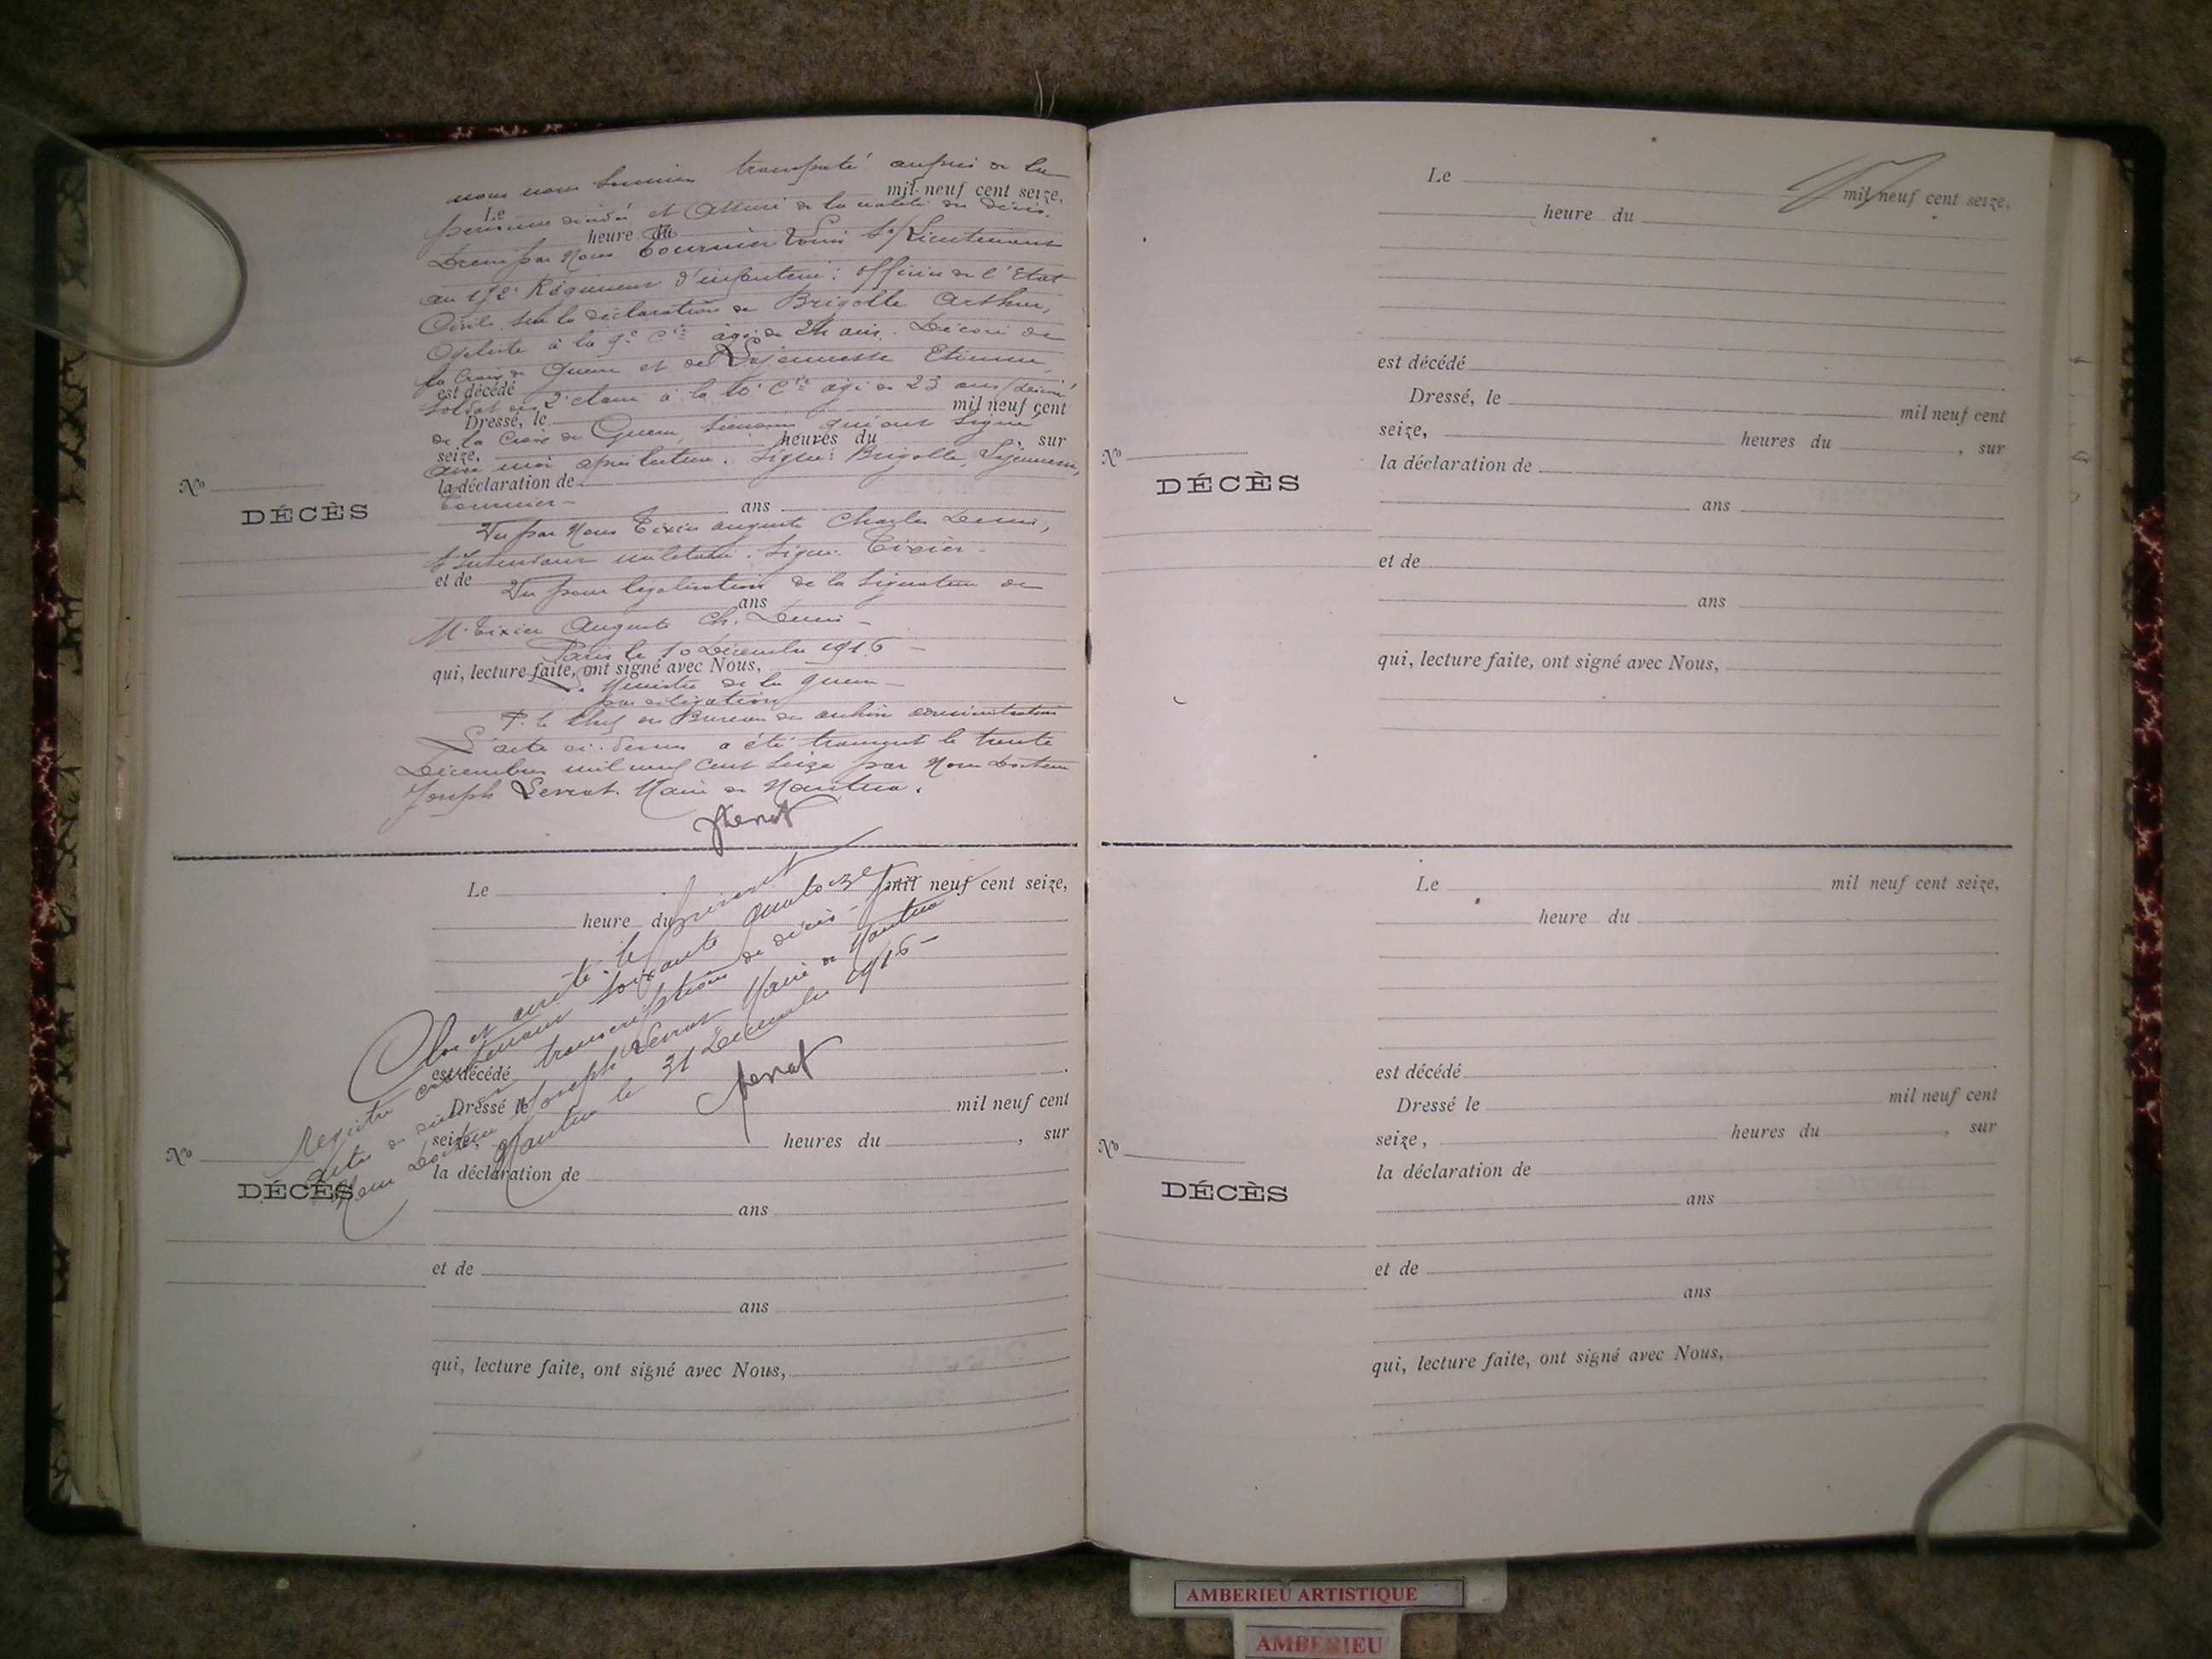 nous nous sommes transporté auprès de la
mil neuf cent seize,
Le
personne décédée et assuré de la réalité du décès.
heure du
Dressé par Nous Tournier Louis S/Lieutenant
au 172e Régiment d'infanterie: officier de l'Etat
Civil, sur la déclaration de Brigolle Arthur,
Cycliste à la 9e Cie âgé de 24 ans. Décoré de
la Croix de Guerre et de Lajeunesse Etienne,
est décédé
soldat de 2e classe à la 10e Cie âgé de 23 ans, décoré
Dressé, le mil neuf cent
de la Croix de Guerre, témoins qui ont signé
seize, heures du , sur
avec moi après lecture. Signé: Brigolle, Lajeunesse,
la déclaration de
Tournier -
ans
Vu par Nous Tixier Auguste Charles Denis,
S/Intendant militaire. Signé: Tixier -
et de
Vu pour légalisation de la signature de
ans
M. Tixier Auguste Ch. Denis -
Paris le 10 Décembre 1916 -
qui, lecture faite, ont signé avec Nous,
Le Ministre de la Guerre -
par délégation
P. le Chef du Bureau des archives administratives
L'acte ci-dessus a été transcrit le trente
Décembre mil neuf cent seize par Nous Docteur
Joseph Levrat Maire de Nantua.
No
DÉCÈS
Le mil neuf cent seize,
heure du
Clos et arrêté le présent
registre contenant soixante quatorze
actes de transcriptions de décès - par
Nous Docteur Joseph Levrat Maire de Nantua
Nantua le 31 Décembre 1916 -
est décédé .
Dressé le mil neuf cent
seize, heures du , sur
No
la déclaration de
DÉCÈS
ans
et de
ans
qui, lecture faite, ont signé avec Nous,
Le mil neuf cent seize,
heure du
est décédé
Dressé, le mil neuf cent
seize, heures du , sur
No
la déclaration de
DÉCÈS
ans
et de
ans
qui, lecture faite, ont signé avec Nous,
Le mil neuf cent seize,
heure du
est décédé .
Dressé le mil neuf cent
seize, heures du , sur
No
la déclaration de
DÉCÈS
ans
et de
ans
qui, lecture faite, ont signé avec Nous,
AMBERIEU ARTISTIQUE
AMBERIEU